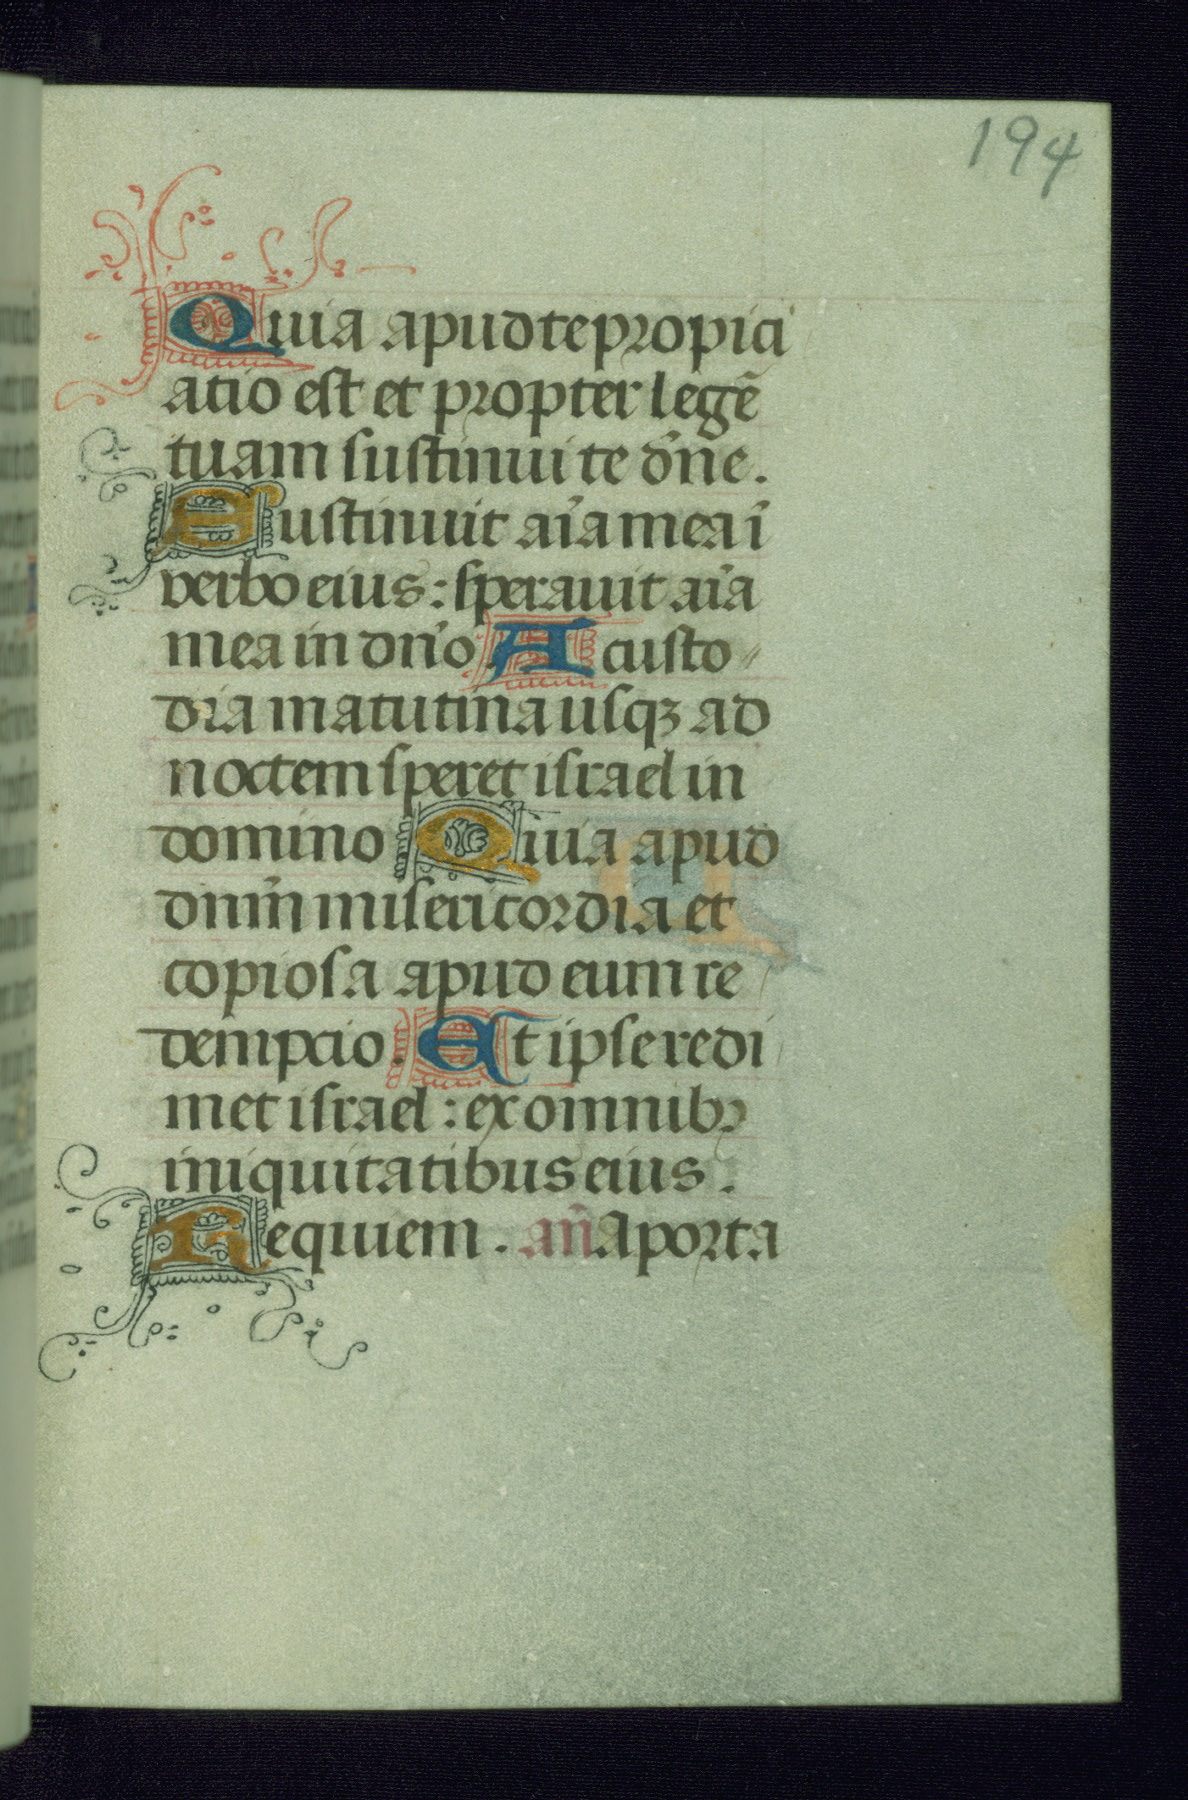 194
Quia apud te propici
atio est et propter legē
tuam sustinui te dñe.
Sustinuit aĩa mea ĩ
verbo eius: speravit aĩa
mea in dño. A custo
dia matutina usqꝫ ad
noctem speret israel in
domino Quia apud
dnm̃ misericordia et
copiosa apud eum re
dempcio. Et ipse redi
met israel: ex omnibꝫ
iniquitatibus eius.
Requiem. añ A porta